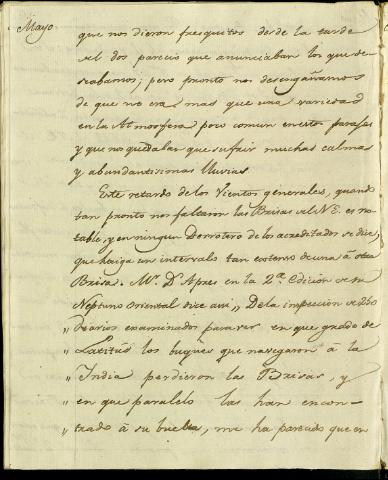 Mayo
que nos dieron fresquitos desde la tarde
al dos parecio que anunciaban los que de-
seabamos; pero pronto nos desengañamos
de que no era mas que una variedad
en la Atmosfera poco comun en estos parages
y que nos quedaban que sufrir muchas calmas
y abundantisimas lluvias
Este retardo de los Vientos generales, quando
tan pronto nos faltaron las Brisas del NE. es no-
table, y en ningun Derrotero de los acreditados se dice,
que haiga un intervalo tan extenso de una á otra
Brisa. Mr. D' Apres en la 2.ª Edicion de su
Neptuno oriental dice asi „ De la inspeccion de 250
„ diarios examinados para ver, en que grado de
„ Latitud los buques que navegaron á la
„ India perdieron las Brisas, y
„ en que paralelo las han encon-
„ trado á su buelta, me ha parecido que en